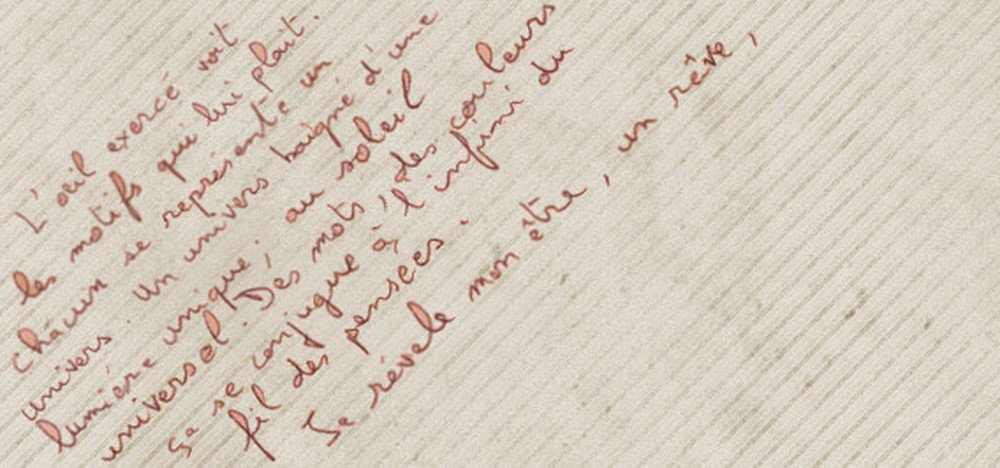 L'œil exercé voit
les motifs qui lui plait.
Chacun se représente un
univers. Un univers baigné d'une
lumière unique, au soleil
universel. Des mots, des couleurs
ça se conjugue à l'infini du
fil des pensées.
Je révèle mon être, un rêve,